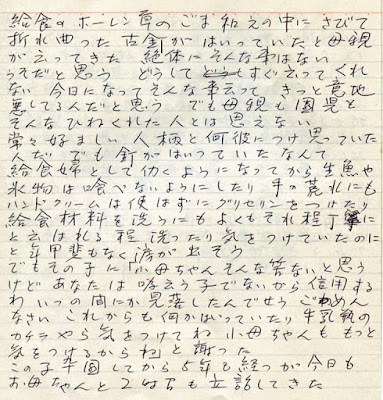 給食のホーレン草のごま和えの中にさびて
折れ曲った古釘がはいっていたと母親
が云ってきた 絶体にそんな事はない
うそだと思う どうしてすぐ云ってくれ
ない 今日になってそんな事云って きっと意地
悪してるんだと思う でも母親も園児も
そんなひねくれた人とは思えない
常々好ましい人柄と何彼につけ思っていた
人だ でも釘がはいっていたなんて
給食婦として仂くようになってから生魚や
氷物は喰べないようにしたり 手の荒れにも
ハンドクリームは使はずにグリセリンをつけたり
給食材料を洗うにもよくもそれ程丁寧に
と云はれる程 洗ったり気をつけていたのに
と年甲斐もなく涙が出そう
でもその子に「小母ちゃんそんな筈ないと思う
けど あなたは嘘云う子でないから信用する
わ いつの間にか見落したんでせう ごめん
なさい これからも何かはいっていたり 牛乳瓶の
カケラやら気をつけてね 小母ちゃんももっと
気をつけるからね」と謝った
この子 卒園してから5年も経つが今日も
お母ちゃんと 立話してきた